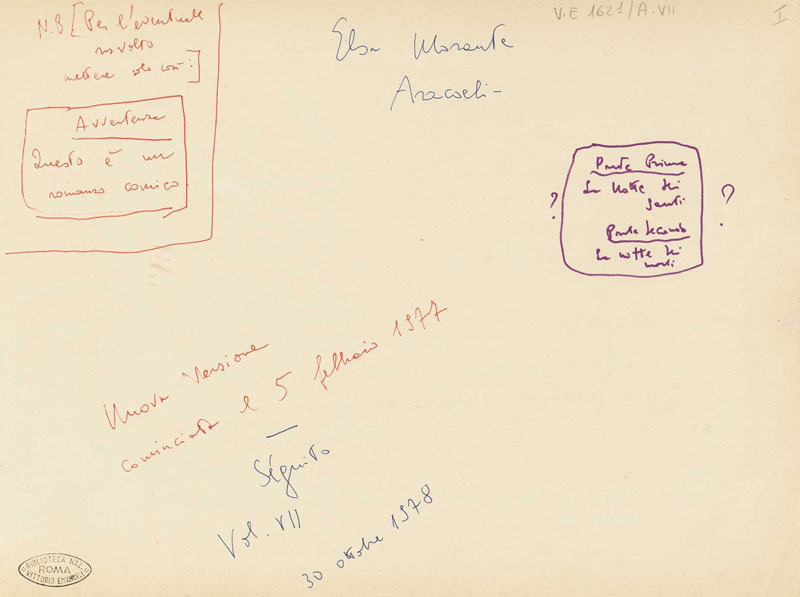 N.B [Per l'eventuale
risvolto
mettere solo così:]
Avvertenza
Questo è un
romanzo comico
Elsa Morante
Aracoeli -
V.E. 1621/A.VII
I
? Parte Prima ?
La Notte dei
Santi
Parte Seconda
La notte dei
morti
Nuova Versione
cominciata il 5 febbraio 1977
—
Séguito
Vol. VII
30 ottobre 1978
BIBLIOTECA NAZ.
ROMA
VITTORIO EMANUELE